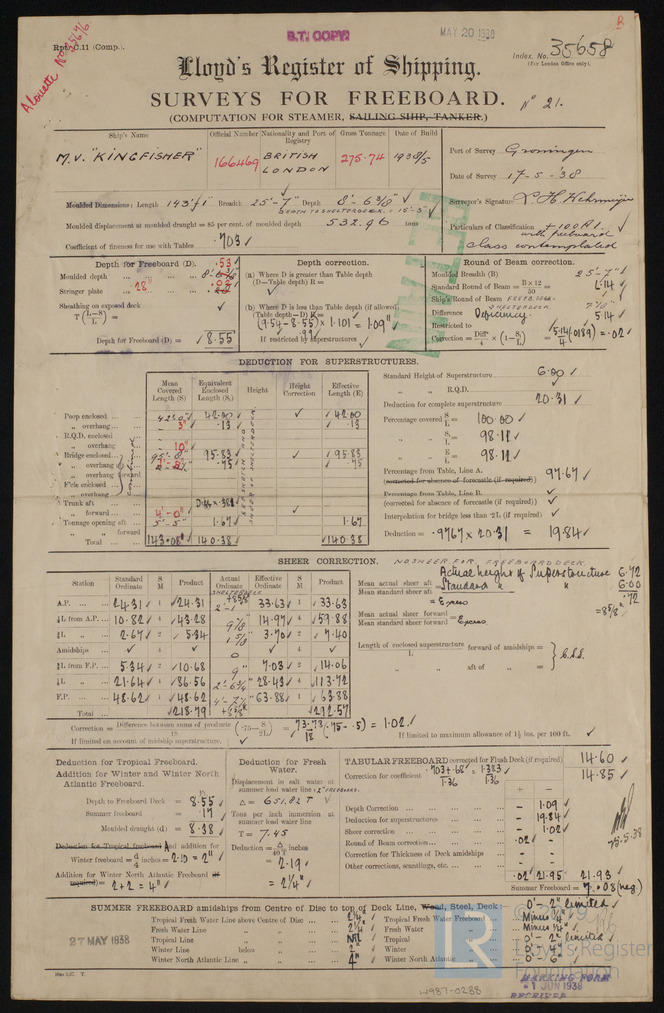 B.T. COPY
MAY 20 1938
Rpt. C.11 (Comp.).
Alouette No 35676
Index. No. 35658
(For London Office only).
Lloyd's Register of Shipping.
SURVEYS FOR FREEBOARD. No 21.
(COMPUTATION FOR STEAMER, SAILING SHIP, TANKER.)
Ship's Name
Official Number
Nationality and Port of Registry
Gross Tonnage
Date of Build
M.V. "KINGFISHER"
166469
BRITISH
LONDON
275.74
1938/5
Port of Survey Groningen
Date of Survey 17-5-'38
Surveyor's Signature
Particulars of Classification +100A1.
with freeboard
class contemplated
Moulded Dimensions: Length 143'1" Breadth 25'-7" Depth 8'-6 3/8"
DEPTH TO SHELTERDECK = 15'-3"
Moulded displacement at moulded draught = 85 per cent. of moulded depth 532.96 tons
Coefficient of fineness for use with Tables .703
RETAIN
Depth for Freeboard (D).
Moulded depth
Stringer plate .28"
Sheathing on exposed deck
T(L-S/L) =
Depth for Freeboard (D) = 8.55
Depth correction.
(a) Where D is greater than Table depth
(D-Table depth) R=
(b) Where D is less than Table depth (if allowed)
(Table depth-D) R=
(9.54-8.55) × 1.101 = 1.09"
.99
If restricted by superstructures
Round of Beam correction.
Moulded Breadth (B) 25'-7"
Standard Round of Beam = B×12/50 = 6.14
Ship's Round of Beam FREEB. DECK.
SHELTERDECK
Difference Deficiency. 5.14
Restricted to
Correction = Diff./4 × (1-S/L) = 5.14/4 (.0189) = .02
DEDUCTION FOR SUPERSTRUCTURES.
Mean Covered Length (S)
Equivalent Enclosed Length (S₁)
Height
Height Correction
Effective Length (E)
Poop enclosed 42'-0" 42.00 42.00
" overhang 3" .13 .13
R.Q.D. enclosed
" overhang 10"
Bridge enclosed 95'-8" 95.83 95.83
" overhang aft .75 .75
" overhang forward
F'cle enclosed
" overhang
Trunk aft
" forward 4'-0"
Tonnage opening aft 5'-5" 1.67 1.67
" " forward
Total 143.08" 140.38 140.38
Standard Height of Superstructure 6.00
" " R.Q.D.
Deduction for complete superstructure 20.31
Percentage covered S/L = 100.00
" " S₁/L = 98.11
" " E/L = 98.11
Percentage from Table, Line A. 97.67
(corrected for absence of forecastle (if required))
Percentage from Table, Line B.
(corrected for absence of forecastle (if required))
Interpolation for bridge less than .2L (if required)
Deduction = .9767 × 20.31 = 19.84
SHEER CORRECTION.
NO SHEER FOR FREEBOARD DECK.
Station
Standard Ordinate
S M
Product
Actual Ordinate
Effective Ordinate
S M
Product
SHELTERDECK
A.P. 24.31 1 24.31 2'-1" 33.63 1 33.63
¼L from A.P. 10.82 4 43.28 9 1/8 14.97 4 59.88
½L " 2.67 2 5.34 1 5/8 3.70 2 7.40
Amidships 4 0 0 4
½L from F.P. 5.34 2 10.68 9" 7.03 2 14.06
¼L " 21.64 4 86.56 2'-6¾" 28.43 4 113.72
F.P. 48.62 1 48.62 4'-7¼" 63.88 1 63.88
Total 218.79 292.57
Actual height of Superstructure 6.72
Mean actual sheer aft
Standard " " 6.00
Mean standard sheer aft
.72
= Excess = 8⅝"
Mean actual sheer forward
Mean standard sheer forward = Excess
Length of enclosed superstructure forward of amidships =
L
" " aft of " =
C.S.S.
Correction = Difference between sums of products / 18 (.75 - S/2L) = 73.78/18 (.75 - .5) = 1.02
If limited on account of midship superstructure.
If limited to maximum allowance of 1½ ins. per 100 ft.
Deduction for Tropical Freeboard.
Addition for Winter and Winter North Atlantic Freeboard.
Depth to Freeboard Deck = 8.55
Summer freeboard = .17
Moulded draught (d) = 8.38
Deduction for Tropical freeboard and addition for
Winter freeboard = d/4 inches = 2.10 = 2"
Addition for Winter North Atlantic Freeboard (if required) = 2+2 = 4"
Deduction for Fresh Water.
Displacement in salt water at
summer load water line
Δ = 651.82 T
Tons per inch immersion at
summer load water line
T = 7.45
Deduction = Δ/40T inches
= 2.19
= 2¼"
TABULAR FREEBOARD corrected for Flush Deck (if required) 14.60
Correction for coefficient .703+.68/1.36 = 1.383/1.36 14.85
+ -
Depth Correction - 1.09
Deduction for superstructures - 19.84
Sheer correction - 1.02
Round of Beam correction .02 -
Correction for Thickness of Deck amidships - -
Other corrections, scantlings, etc. - -
.02 21.95 21.93
Summer Freeboard = 7.08 (neg.)
25.5.38
SUMMER FREEBOARD amidships from Centre of Disc to top of Deck Line, Wood, Steel, Deck: 0'-2" limited
Tropical Fresh Water Line above Centre of Disc 2¼" Tropical Fresh Water Freeboard Minus ¼"
Fresh Water Line " " 2¼" Fresh Water " Minus ¼"
Tropical Line " " NIL Tropical " 0'-2" limited
Winter Line below " " 2" Winter " 0'-4"
Winter North Atlantic Line " " 4" Winter North Atlantic " 0'-6"
27 MAY 1938
LR
Lloyd's Register
Foundation
MARKING FORM
-1 JUN 1938
RECEIVED
14987-0288